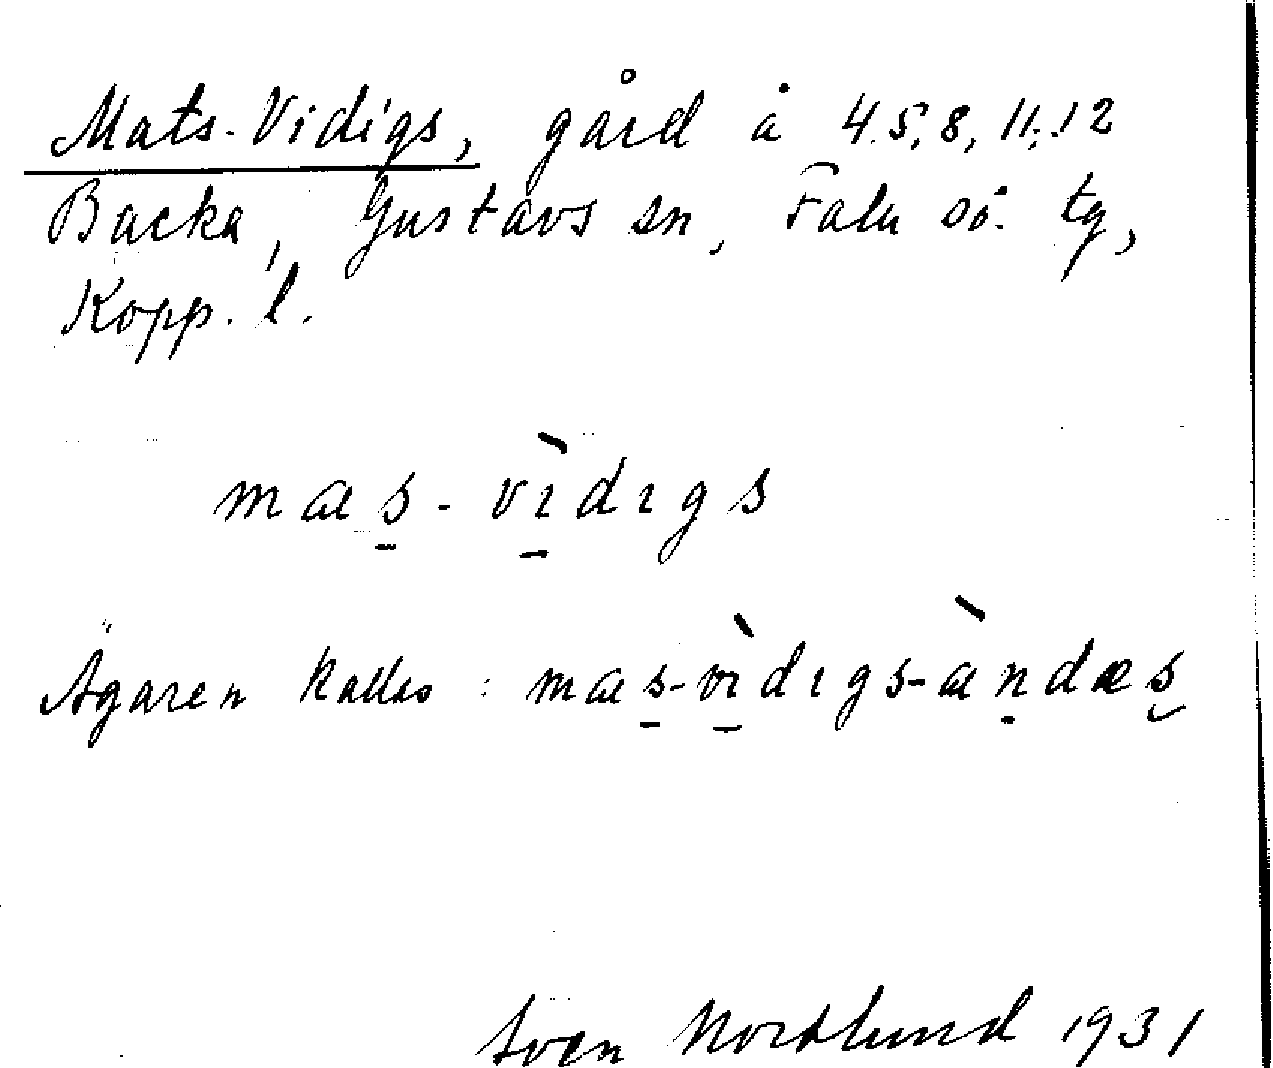 Mats-Vidigs, gård å 4.5, 8, 11, 12
Backa, Gustavs sn, Falu sö. tg,
Kopp. l.
mas̱-vì̱dıgs
Ägaren kallas: mas̱-vì̱dıgs-àṇdæs̮
Sven Nordlund 1931